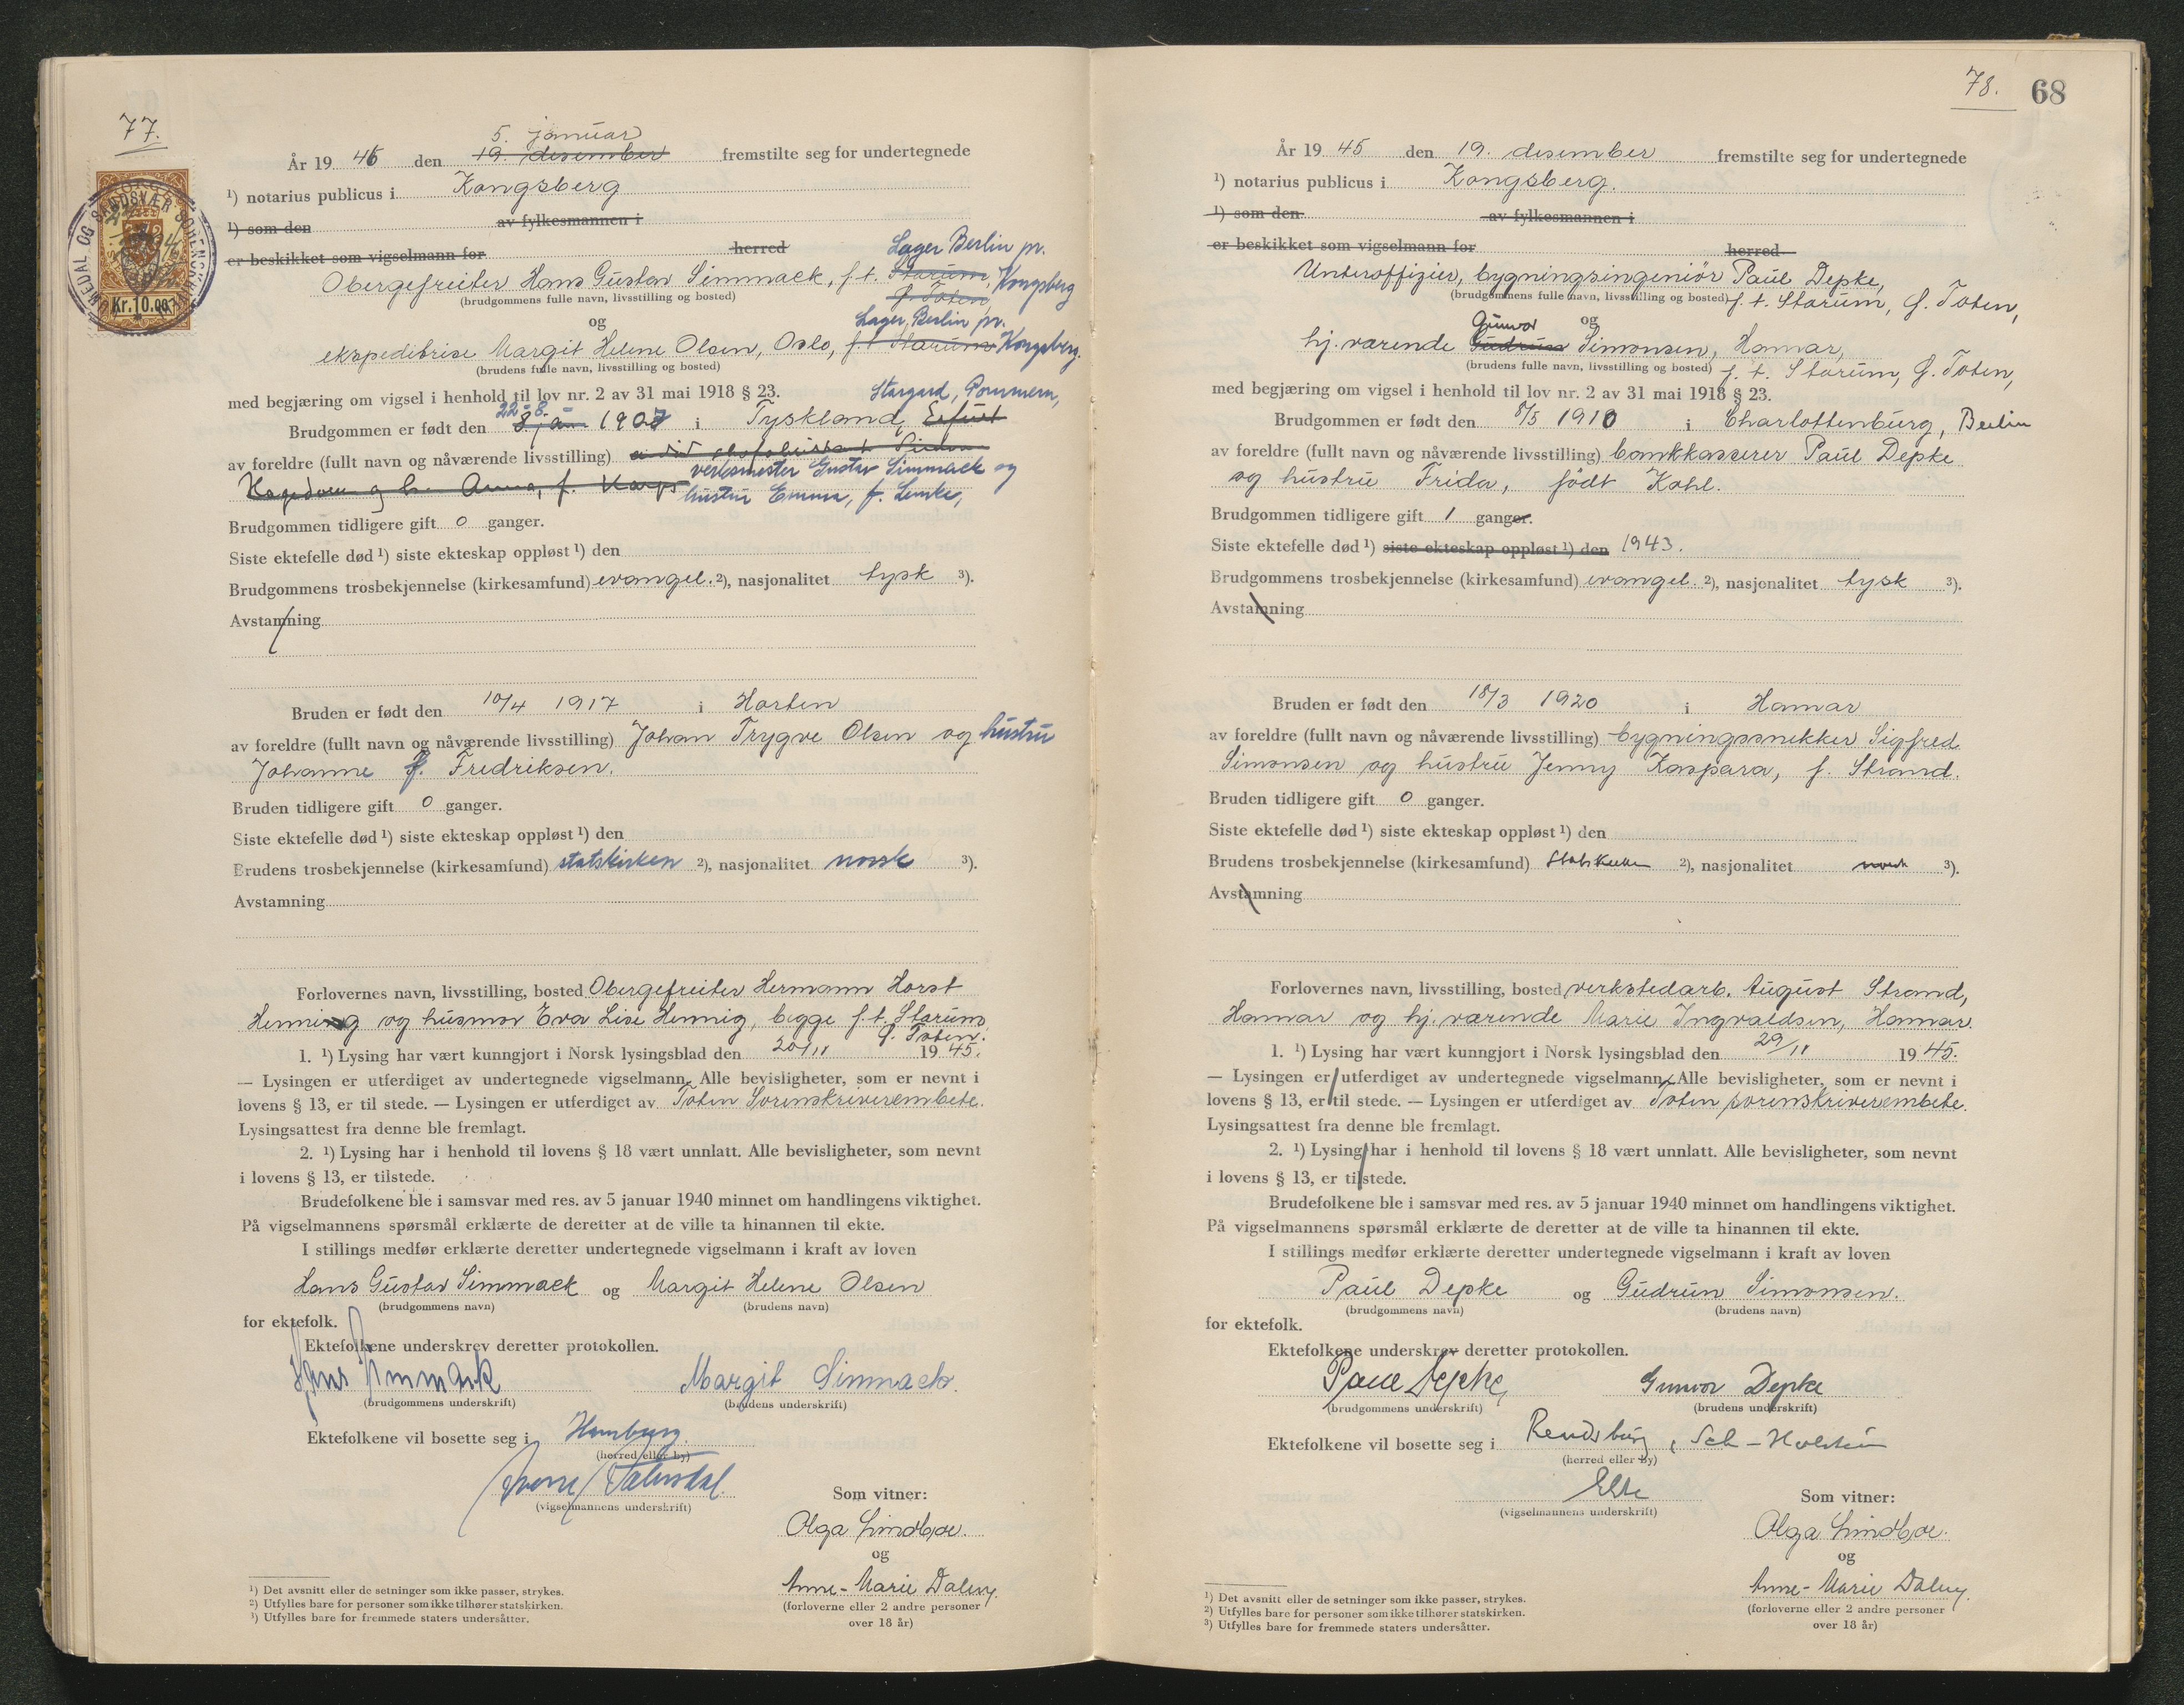 77.
5. januar
År 19 46 den 19. desember fremstilte seg for undertegnede
¹) notarius publicus i Kongsberg
¹) som den av fylkesmannen i
er beskikket som vigselmann for herred Lager Berlin pr.
Obergefreiter Hans Gustav Simmack, f.t. Starum, Kongsberg
(brudgommens fulle navn, livsstilling og bosted) Ø. Toten,
og Lager, Berlin pr.
ekspeditrise Margit Helene Olsen, Oslo, f.t. Starum Kongsberg.
(brudens fulle navn, livsstilling og bosted)
med begjæring om vigsel i henhold til lov nr. 2 av 31 mai 1918 § 23. Stargard, Pommern,
22-8.
Brudgommen er født den 1907 i Tyskland, Erfurt
av foreldre (fullt navn og nåværende livsstilling)
verksmester Gustav Simmack og
Anna, f. hustru Emma, f. Lemke,
Brudgommen tidligere gift 0 ganger.
Siste ektefelle død ¹) siste ekteskap oppløst ¹) den
Brudgommens trosbekjennelse (kirkesamfund) evangel. ²), nasjonalitet tysk ³).
Avstamning
Bruden er født den 10/4 1917 i Horten
av foreldre (fullt navn og nåværende livsstilling) Johan Trygve Olsen og hustru
Johanne f. Fredriksen.
Bruden tidligere gift 0 ganger.
Siste ektefelle død ¹) siste ekteskap oppløst ¹) den
Brudens trosbekjennelse (kirkesamfund) statskirken ²), nasjonalitet norsk ³).
Avstamning
Forlovernes navn, livsstilling, bosted Obergefreiter Hermann Horst
Hennig og husmor Eva Lise Hennig, begge f.t. Starum
Ø. Toten.
1. ¹) Lysing har vært kunngjort i Norsk lysingsblad den 20/11 19 45.
— Lysingen er utferdiget av undertegnede vigselmann. Alle bevisligheter, som er nevnt i
lovens § 13, er til stede. — Lysingen er utferdiget av Toten Sorenskriverembete.
Lysingsattest fra denne ble fremlagt.
2. ¹) Lysing har i henhold til lovens § 18 vært unnlatt. Alle bevisligheter, som nevnt
i lovens § 13, er tilstede.
Brudefolkene ble i samsvar med res. av 5 januar 1940 minnet om handlingens viktighet.
På vigselmannens spørsmål erklærte de deretter at de ville ta hinannen til ekte.
I stillings medfør erklærte deretter undertegnede vigselmann i kraft av loven
Hans Gustav Simmack og Margit Helene Olsen
(brudgommens navn) (brudens navn)
for ektefolk.
Ektefolkene underskrev deretter protokollen.
Hans Simmack Margit Simmack.
(brudgommens underskrift) (brudens underskrift)
Ektefolkene vil bosette seg i Hamburg.
(herred eller by)
(vigselmannens underskrift)
Som vitner:
Olga Lindboe.
og
Anne-Marie Dalevy.
(forloverne eller 2 andre personer
over 18 år)
¹) Det avsnitt eller de setninger som ikke passer, strykes.
²) Utfylles bare for personer som ikke tilhører statskirken.
³) Utfylles bare for fremmede staters undersåtter.
Kr. 10.00
78. 68
År 19 45 den 19. desember fremstilte seg for undertegnede
¹) notarius publicus i Kongsberg.
¹) som den av fylkesmannen i
er beskikket som vigselmann for herred
Unteroffizier, bygningsingeniør Paul Depke,
(brudgommens fulle navn, livsstilling og bosted) f.t. Starum, Ø. Toten,
Gunvor og
hj.værende Gudrun Simonsen, Hamar,
(brudens fulle navn, livsstilling og bosted) f.t. Starum, Ø. Toten,
med begjæring om vigsel i henhold til lov nr. 2 av 31 mai 1918 § 23.
Brudgommen er født den 8/5 1910 i Charlottenburg, Berlin
av foreldre (fullt navn og nåværende livsstilling) bankkasserer Paul Depke
og hustru Frida, født Kohl.
Brudgommen tidligere gift 1 ganger.
Siste ektefelle død ¹) siste ekteskap oppløst ¹) den 1943.
Brudgommens trosbekjennelse (kirkesamfund) evangel. ²), nasjonalitet tysk ³).
Avstamning
Bruden er født den 18/3 1920 i Hamar
av foreldre (fullt navn og nåværende livsstilling) bygningssnekker Sigfred
Simonsen og hustru Jenny Kaspara, f. Strand.
Bruden tidligere gift 0 ganger.
Siste ektefelle død ¹) siste ekteskap oppløst ¹) den
Brudens trosbekjennelse (kirkesamfund) Statskirken ²), nasjonalitet norsk ³).
Avstamning
Forlovernes navn, livsstilling, bosted verkstedarb. August Strand,
Hamar og hj.værende Marie Ingvaldsen, Hamar.
1. ¹) Lysing har vært kunngjort i Norsk lysingsblad den 29/11 19 45.
— Lysingen er utferdiget av undertegnede vigselmann. Alle bevisligheter, som er nevnt i
lovens § 13, er til stede. — Lysingen er utferdiget av Toten sorenskriverembete.
Lysingsattest fra denne ble fremlagt.
2. ¹) Lysing har i henhold til lovens § 18 vært unnlatt. Alle bevisligheter, som nevnt
i lovens § 13, er tilstede.
Brudefolkene ble i samsvar med res. av 5 januar 1940 minnet om handlingens viktighet.
På vigselmannens spørsmål erklærte de deretter at de ville ta hinannen til ekte.
I stillings medfør erklærte deretter undertegnede vigselmann i kraft av loven
Paul Depke og Gudrun Simonsen.
(brudgommens navn) (brudens navn)
for ektefolk.
Ektefolkene underskrev deretter protokollen.
Paul Depke, Gunvor Depke
(brudgommens underskrift) (brudens underskrift)
Ektefolkene vil bosette seg i Rendsburg, Sch-Holstein
(herred eller by)
(vigselmannens underskrift)
Som vitner:
Olga Lindboe.
og
Anne-Marie Dalevy.
(forloverne eller 2 andre personer
over 18 år)
¹) Det avsnitt eller de setninger som ikke passer, strykes.
²) Utfylles bare for personer som ikke tilhører statskirken.
³) Utfylles bare for fremmede staters undersåtter.